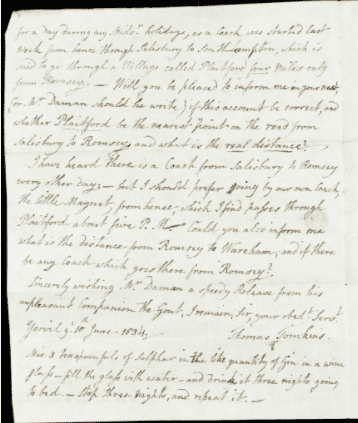 for a day during my Mids.r holidays, as a Coach was started last
week from hence through Salisbury to Southampton, which is
said to go through a Village called Plaitford four miles only
from Romsey. — Will you be pleased to inform me in your next
(or Mr. Daman should he write) if this account be correct, and
whether Plaitford be the nearest point on the road from
Salisbury to Romsey and what is the real distance?
I have heard there is a Coach from Salisbury to Romsey
every other day — but I should prefer going by our own Coach,
the little Magnet from hence, which I find passes through
Plaitford about five P.M. Could you also inform me
what is the distance from Romsey to Wareham, and if there
be any Coach which goes there from Romsey?
Sincerely wishing Mr. Daman a speedy Release from his
unpleasant Companion the Gout, I remain, Sir, your obed.t Serv.t
Yeovil 9. 10th June 1834. Thomas Tomkins.
Mix 3 teaspoonfuls of Sulphur in the like quantity of Gin in a wine
glass — fill the glass with water — and drink it three nights going
to bed. — Stop three nights, and repeat it. —